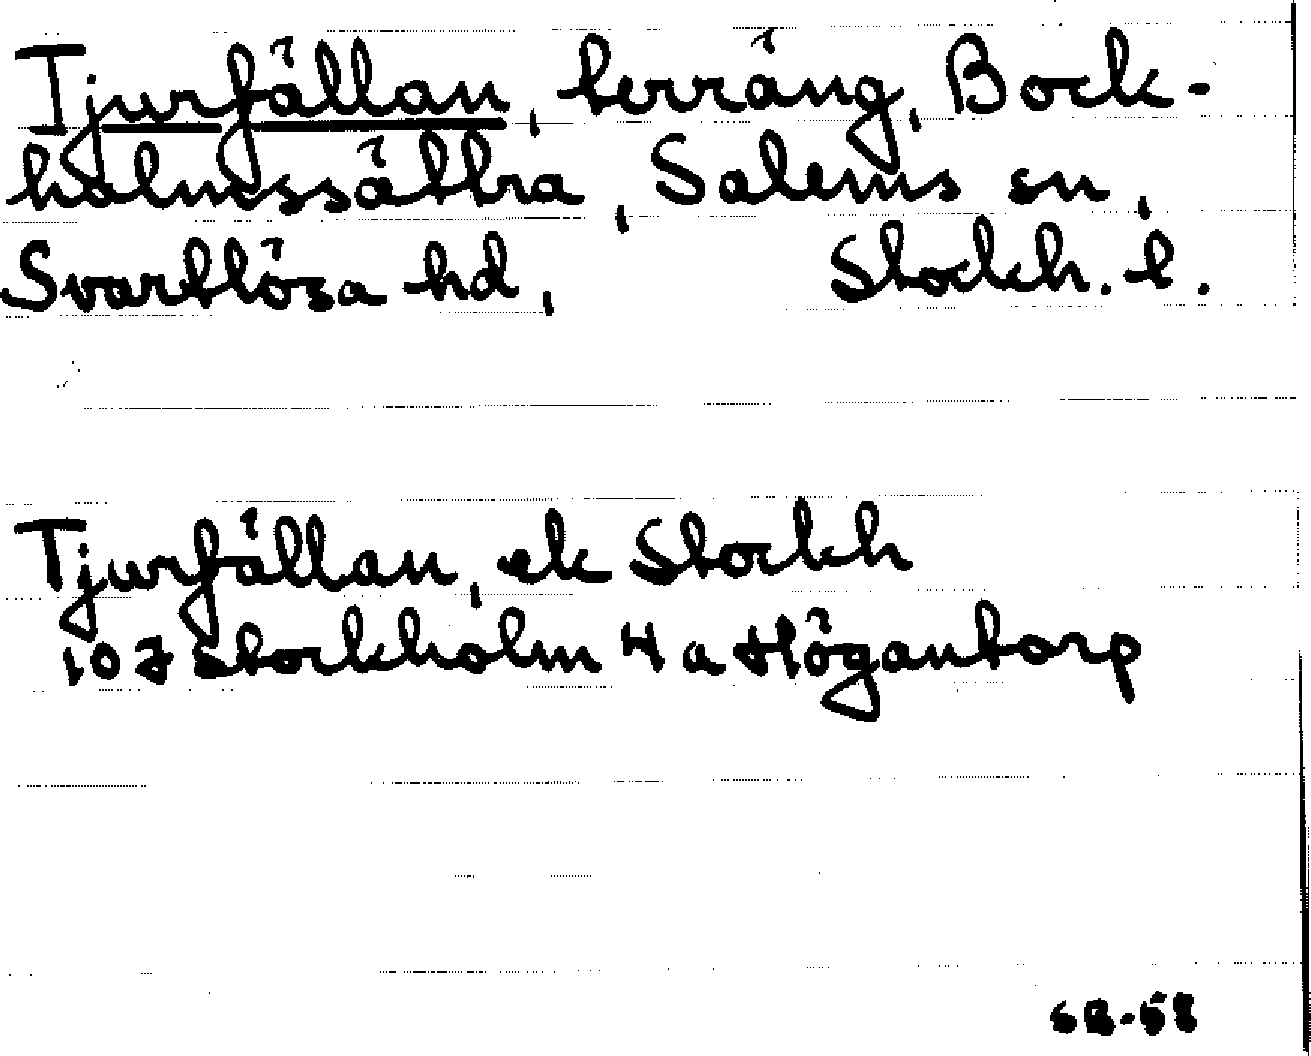 Tjurfällan, terräng, Bock-
holmssättra, Salems sn,
Svartlösa hd, Stockh. l.
Tjurfällan, ek Stockh
10 J Stockholm 4 a Högantorp